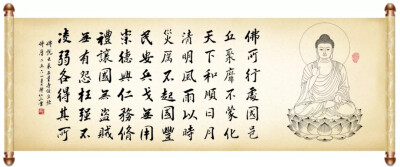 佛所行處國邑
丘聚靡不蒙化
天下和順日月
清明風雨以時
災厲不起國豐
民安兵戈無用
崇德興仁務修
禮讓國無盜賊
無有怨枉強不
凌弱各得其所